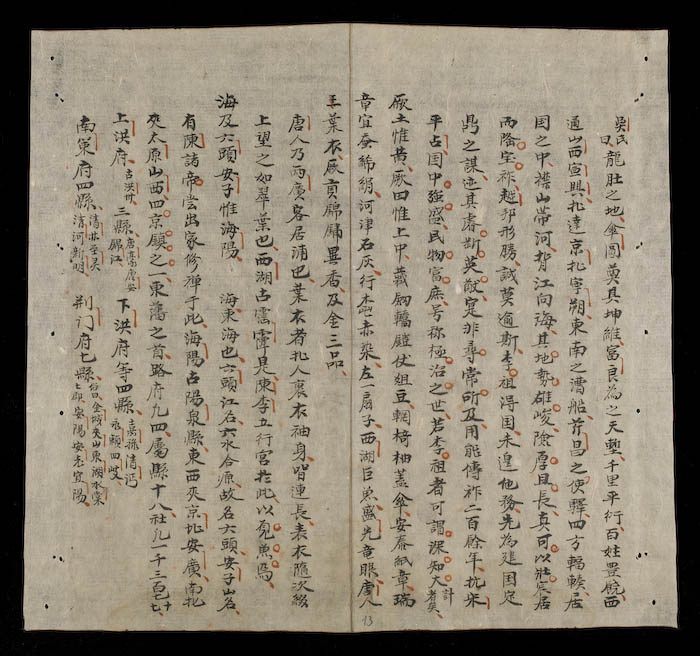 吳氏曰龍肚之地傘圓奠其坤維富良為之天塹千里平衍百姓豐脱西
通山西宣興北達京北寧朔東南之漕船芹昌之使驛四方輻輳居
国之中襟山帶河背江向海其地勢雄峻險厚且長真可以壯宸居
而隆宝祚越邦形勝誠莫逾斯李祖得国未遑他務先為建国定
鼎之謀迹其睿斷英敵定非尋常所及用能傳祚二百餘年抗宋
平占国中強盛民物富庶号称極治之世若李祖者可謂深知大計者矣
厥土惟黄厥田惟上中藏劔鐙仗俎豆輞椅柚蓋傘安泰紙章瑞
章宜蚕綿絹河津石灰行赤染左一扇子西湖巨魚盛光竜眼唐人
王葉衣厥貢錦異香及金三品
唐人乃两廣客居浦也葉衣者北人裏衣袖身皆連長表衣隨次綴
上望之如翠葉也西湖古霪潭是陳李立行宮於此以覌魚焉
海及六頭安子惟海陽 海東海也六頭江名六水合源故名六頭安子山名
有陳諸帝嘗出家修禅于此海陽古陽泉縣東西夾京北安廣南北
夾太原山西四京鎮之一東藩之首路府凡四属縣十八社凡一千三百七十七
上洪府古洪州三縣唐豪唐安錦江 下洪府等四縣嘉孫清沔永賴四岐
南策府四縣清林至灵清河新明 荆门府七縣金城夾山東潮水棠七郡安陽安老宜陽
13